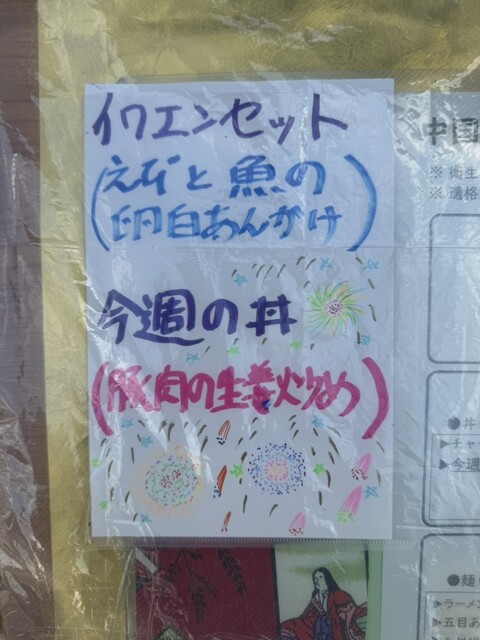 イワエンセット
(えびと魚の
卵白あんかけ)
今週の丼
(豚肉の生姜炒め)
中国
※ 衛生
※ 適格
●丼
▶チャー
▶今週
●麺
▶ラーメン
▶五目あ